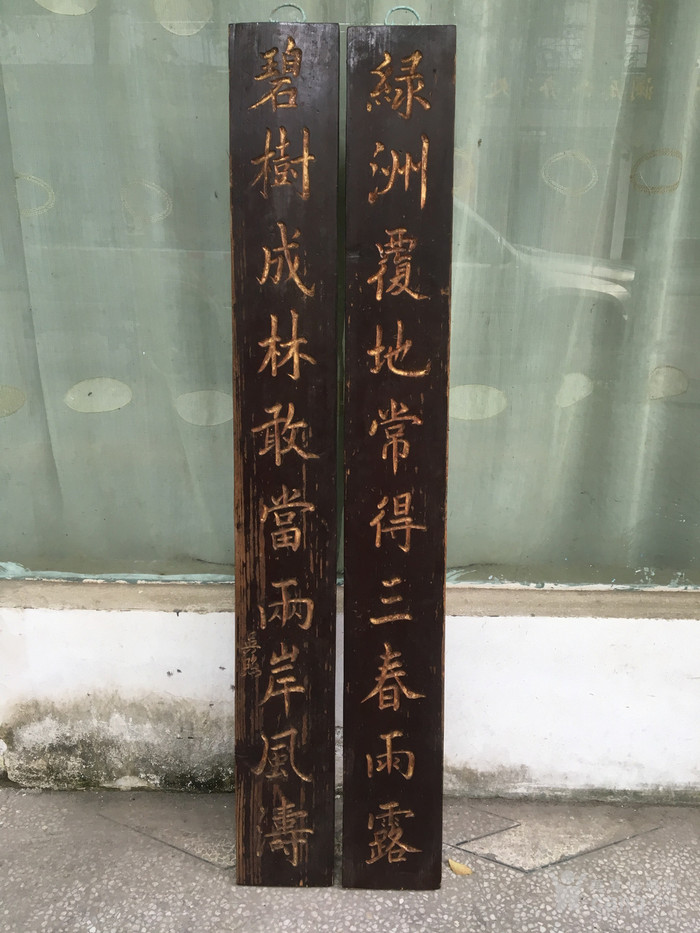 綠洲覆地常得三春雨露
碧樹成林敢當兩岸風濤